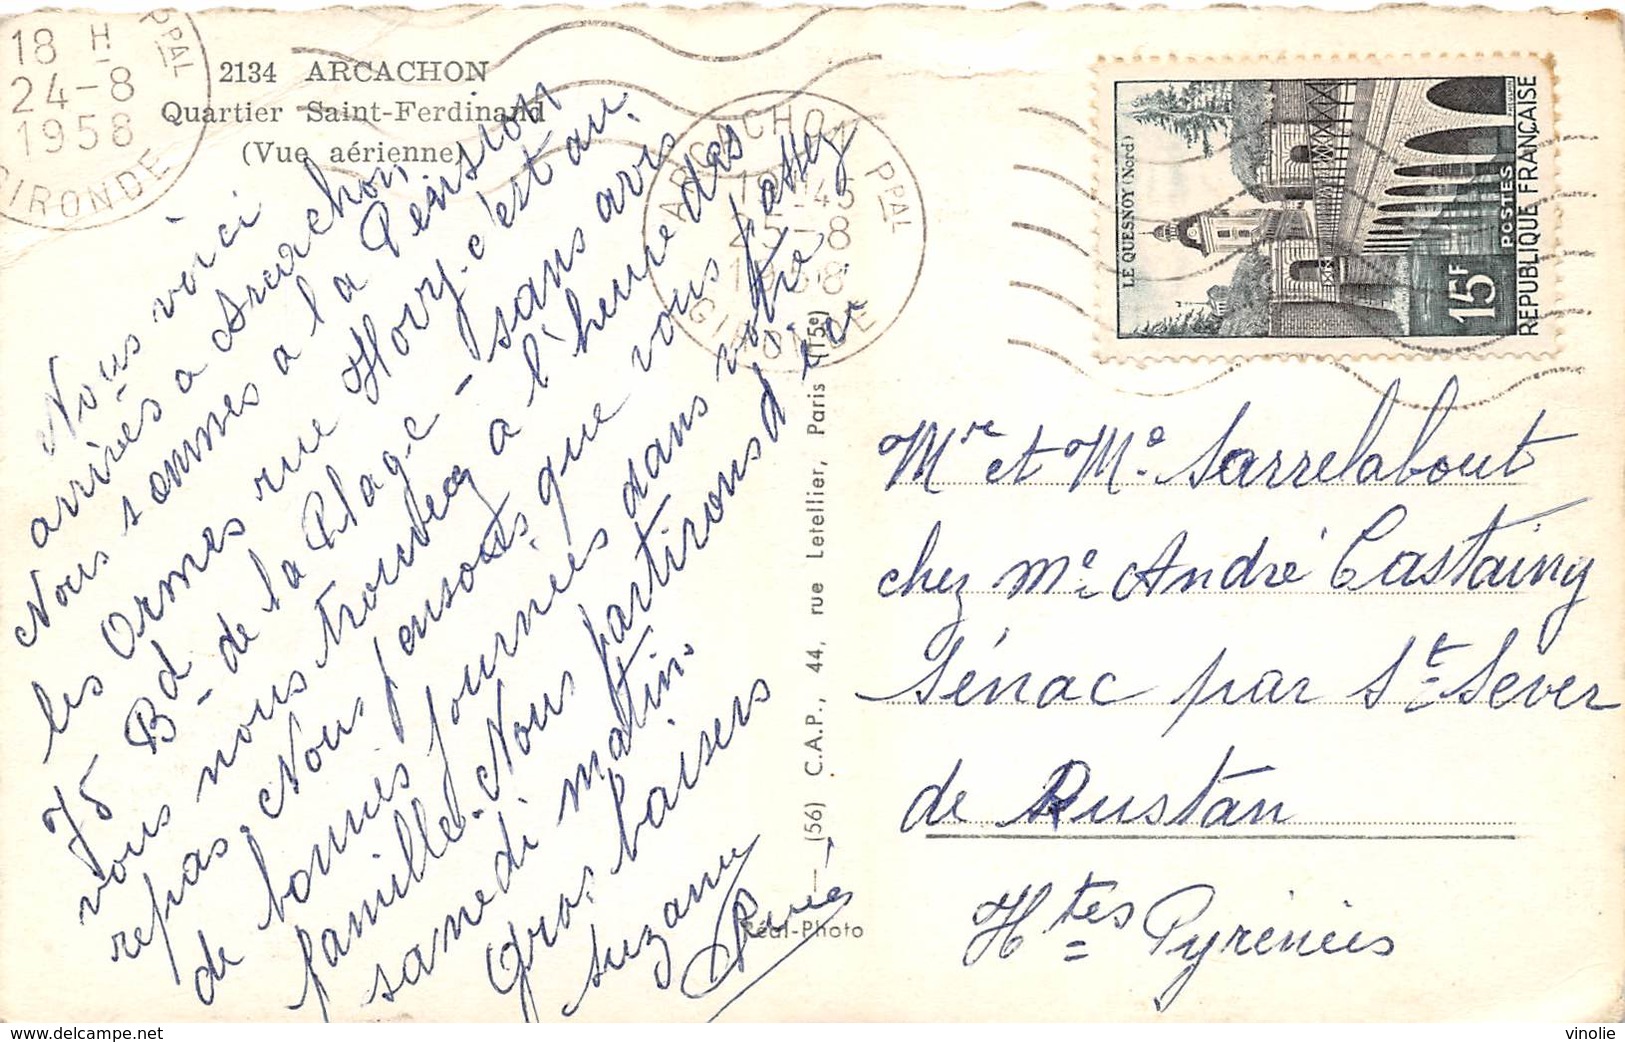 2134 ARCACHON
Quartier Saint-Ferdinand
(Vue aérienne)
18 H
24-8
1958
PPAL
GIRONDE
ARCACHON PPAL
25-8
1958
GIRONDE
LE QUESNOY (Nord)
15F
POSTES
REPUBLIQUE FRANÇAISE
Nous voici
arrivés a Arcachon
Nous sommes a la Pension
les Ormes rue Hovy. c'est au
75 Bd de la Plage - sans avis
vous nous trouverez a l'heure des
repas. Nous pensons que vous passez
de bonnes journées dans votre
famille. Nous partirons d'ici
samedi matin.
Gros baisers
Suzanne
René
(56) C.A.P., 44, rue Letellier, Paris (15e)
Réal-Photo
Mr et Me Sarrelabout
chez Me André Castaing
Sénac par St Sever
de Rustan
Htes Pyrénées
www.delcampe.net
vinolie